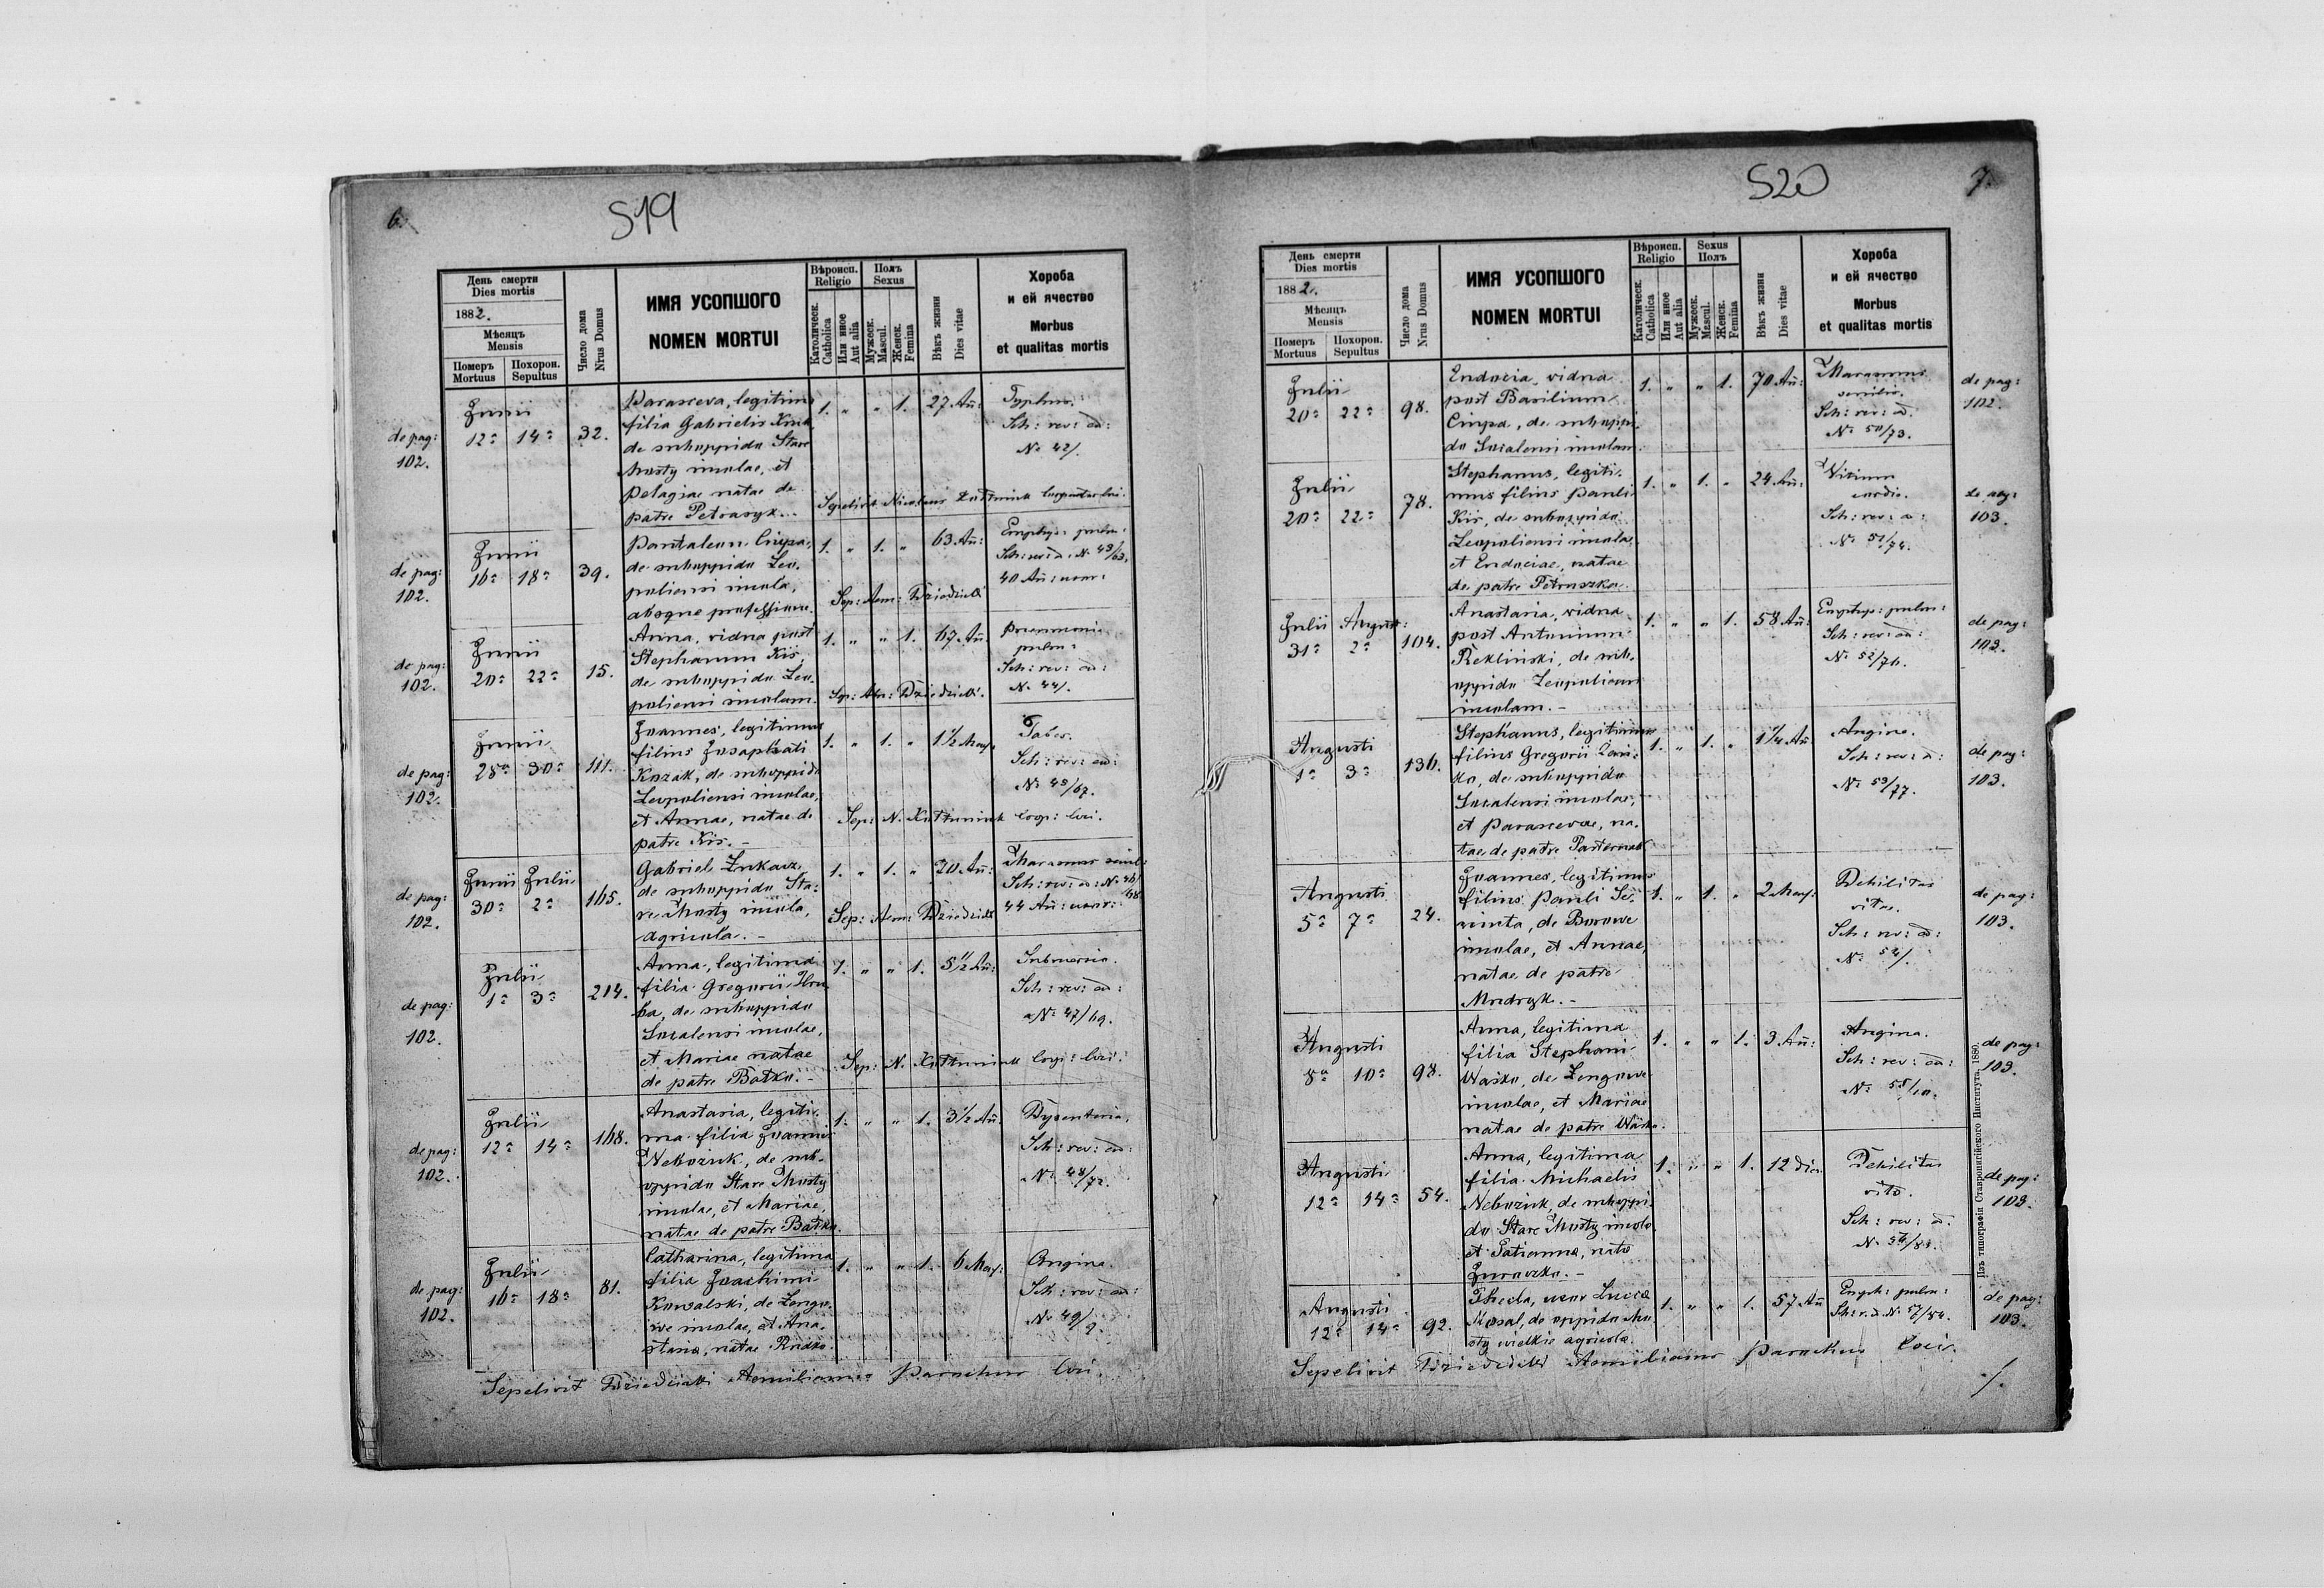 6.
519
День смерти
Dies mortis
1882.
Мѣсяцъ
Mensis
Померъ
Mortuus
Похорон.
Sepultus
Число дома
Nrus Domus
ИМЯ УСОПШОГО
NOMEN MORTUI
Вѣроисп.
Religio
Католическ.
Catholica
Или иное
Aut alia
Полъ
Sexus
Мужеск.
Mascul.
Женск.
Femina
Вѣкъ жизни
Dies vitae
Хороба
и ей ячество
Morbus
et qualitas mortis
de pag:
102.
Junii
12a 14a 32.
Parasceva, legitima
filia Gabrielis
de suboppido Stare
Mosty incolae, et
Pelagiae natae de
patre Petrasyk.
1. " " 1. 27 Añ:
Typhus.
Sch: rev: ad:
No 42/.
Sepelivit Nicolaus
de pag:
102.
Junii
16a 18a 39.
Pantaleon Ciupa,
de suboppido Leo-
poliensi incola,
absque professione.
1. " 1. " 63 Añ:
Emphys: pulm:
Sch: rev: a: No 43/63.
40 Añ:
Sep: Aem: Dziedzicki
de pag:
102.
Junii
20a 22a 15.
Anna, vidua post
Stephanum Kis,
de suboppido Leo-
poliensi incolam.
1. " " 1. 67 Añ:
Pneumonia
pulm:
Sch: rev: ad:
No 44/.
Sep: Aem: Dziedzicki.
de pag:
102.
Junii
28a 30a 111.
Joannes, legitimus
filius Josaphati
Kozak, de suboppido
Leopoliensi incolae,
et Annae, natae de
patre Kis. -
1. " 1. " 1 1/2 Mens.
Tabes.
Sch: rev: ad:
No 45/67.
Sep: N. coop: loci.
de pag:
102.
Junii Julii
30a 2a 165.
Gabriel Lukacz,
de suboppido Sta-
re Mosty incola,
agricola. -
1. " 1. " 70 Añ:
Marasmus senil:
Sch: rev: ad: No 46/68
44 Añ:
Sep: Aem: Dziedzicki
de pag:
102.
Julii
1a 3a 214.
Anna, legitima
filia Gregorii
ba, de suboppido
Socalensi incolae,
et Mariae natae
de patre Batko. -
1. " " 1. 5 1/2 Añ:
Submersio.
Sch: rev: ad:
No 47/69.
Sep: N. coop: loci.
de pag:
102.
Julii
12a 14a 168.
Anastasia, legiti-
ma filia Joannis
Neboziuk, de sub-
oppido Stare Mosty
incolae, et Mariae,
natae de patre Batko.
1. " " 1. 3 1/2 Añ.
Dysenteria.
Sch: rev: ad:
No 48/72.
de pag:
102.
Julii
16a 18a 81.
Catharina, legitima
filia Joachimi
Kowalski, de Zengo-
we incolae, et Ana-
stasia, natae Rudko.
1. " " 1. 6 Mens:
Angina.
Sch: rev: ad:
No 49/9.
Sepelivit Dziedzicki Aemilianus Parochus loci.
520
7.
День смерти
Dies mortis
1882.
Мѣсяцъ
Mensis
Померъ
Mortuus
Похорон.
Sepultus
Число дома
Nrus Domus
ИМЯ УСОПШОГО
NOMEN MORTUI
Вѣроисп.
Religio
Католическ.
Catholica
Или иное
Aut alia
Sexus
Полъ
Мужеск.
Mascul.
Женск.
Femina
Вѣкъ жизни
Dies vitae
Хороба
и ей ячество
Morbus
et qualitas mortis
Julii
20a 22a 98.
Eudocia, vidua
post Basilium
Ciupa, de suboppi-
do Socalensi incolam.
1. " " 1. 70 Añ:
Marasmus
senilis.
Sch: rev: ad.
No 50/73.
de pag:
102.
Julii
20a 22a 78.
Stephanus, legiti-
mus filius Pauli
Kis, de suboppido
Leopoliensi incolae,
et Eudociae, natae
de patre Petruszka.
1. " 1. " 24 Añ:
Vitium
cordis.
Sch: rev: a:
No 51/74.
de pag:
103.
Julii August:
31a 2a 104.
Anastasia, vidua
post Antonium
Rekliński, de sub-
oppido Leopoliensi
incolam. -
1. " " 1. 58 Añ:
Emphys: pulm:
Sch: rev: ad:
No 52/76.
de pag:
103.
Augusti
1a 3a 136.
Stephanus, legitimus
filius Gregorii
ko, de suboppido
Socalensi incolae,
et Parascevae, na-
tae de patre Pasternak
1. " 1. " 1 1/4 Añ.
Angina.
Sch: rev: a:
No 53/77.
de pag:
103.
Augusti
5a 7a 24.
Joannes, legitimus
filius Pauli
de Borowe
incolae, et Annae,
natae de patre
Mudryk. -
1. " 1. " 2 Mens:
Debilitas
vitae.
Sch: rev: ad:
No 54/.
de pag:
103.
Augusti
8a 10a 98.
Anna, legitima
filia Stephani
Waśko, de Zengowe
incolae, et Mariae
natae de patre Waśko.
1. " " 1. 3 Añ:
Angina.
Sch: rev: ad:
No 55/10.
de pag:
103.
Augusti
12a 14a 54.
Anna, legitima
filia Michaelis
Neboziuk, de suboppi-
do Stare Mosty incolae
et Tatianna, natae
Juraszko. -
1. " " 1. 12 dies
Debilitas
vitae.
Sch: rev: ad.
No 56/83.
de pag:
103.
Augusti
12a 14a 92.
Thecla, uxor Lucae
Kosal, de oppido Mo-
sty wielkie agricola.
1. " " 1. 57 Añ
Emph: pulm:
Sch: r. a. No 57/84.
de pag:
103.
Sepelivit Dziedzicki Aemilianus Parochus loci.
./.
Изъ типографіи Ставропигійского Института. 1880.